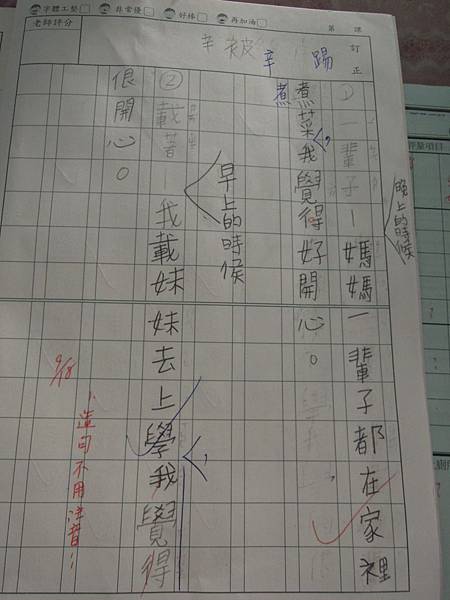 字體工整 非常優 好棒 再加油 第 課
老師評分
訂正
辛被
辛 踢
晚上的時候
①一輩子－媽媽一輩子都在家裡
煮菜，我覺得好開心。
煮
早上的時候
②載著－我載妹妹去上學，我覺得
很開心。
造句不用注音!!
9/18